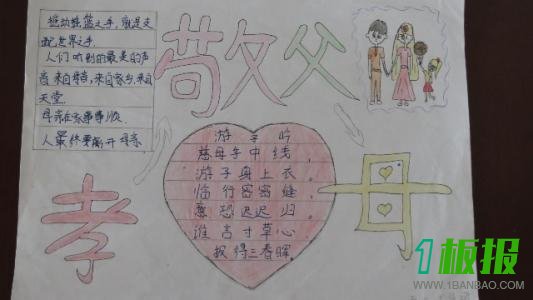 摇动摇篮之手，就是支
配世界之手.
人们听到的最美的声
音来自，来自家乡，来自
天堂.
母亲在家事事顺.
人最终要离开母亲.
敬父
母
孝
游子吟
慈母手中线，
游子身上衣。
临行密密缝，
意恐迟迟归。
谁言寸草心
报得三春晖。
1板报
WWW.1BANBAO.COM